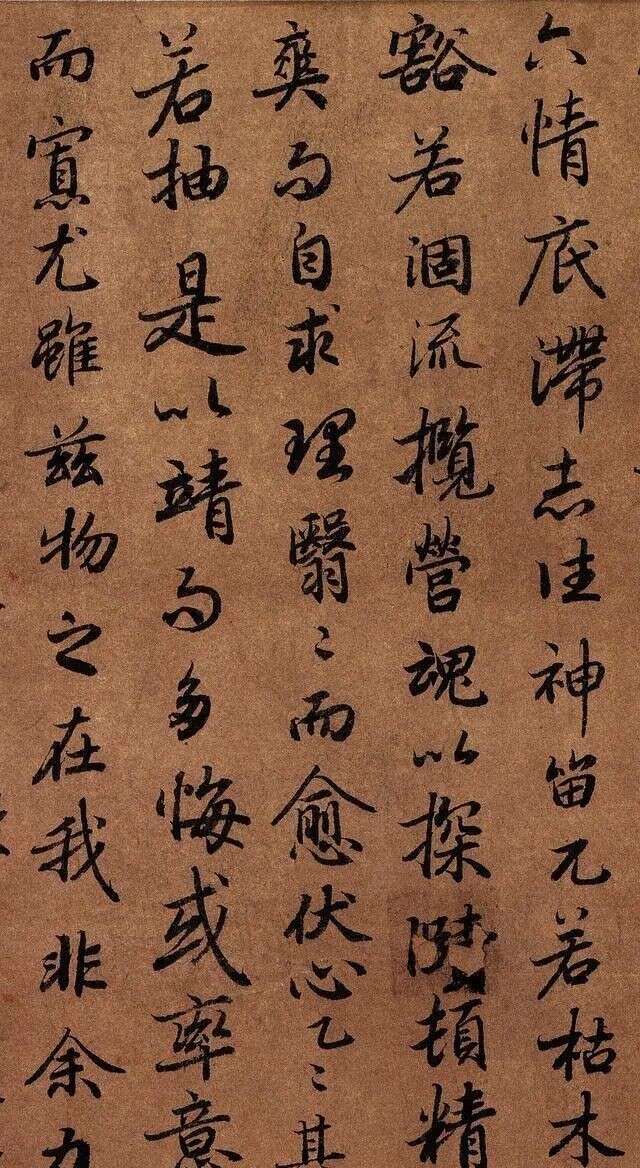 六情底滞志往神留兀若枯木
豁若涸流揽营魂以探赜顿精
爽而自求理翳〻而愈伏心乙〻其
若抽是以竭而多悔或率意
而寡尤虽兹物之在我非余力